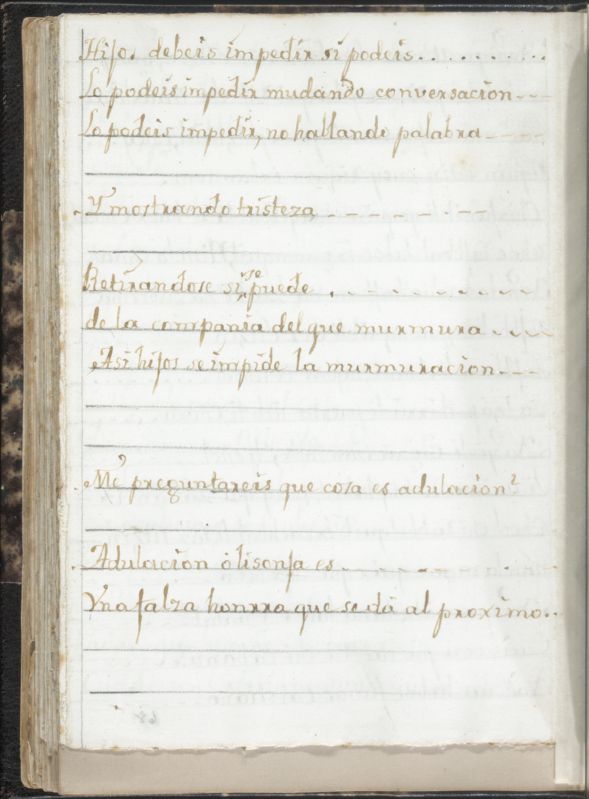 Hijos debeis impedir si podeis. . . . . . . . . .
Lo podeis impedir mudando conversacion - - -
Lo podeis impedir, no hallando palabra - - - -
Y mostrando tristeza, - - - - - - -
Retirandose si se puede . - - - - - - -
de la compania del que murmura - - - -
Asi hijos se impide la murmuracion - - -
Me preguntareis que cosa es adulacion?
Adulacion ò lisonja es . - - - - . .
Vna falza honrra que se dà al proximo. .